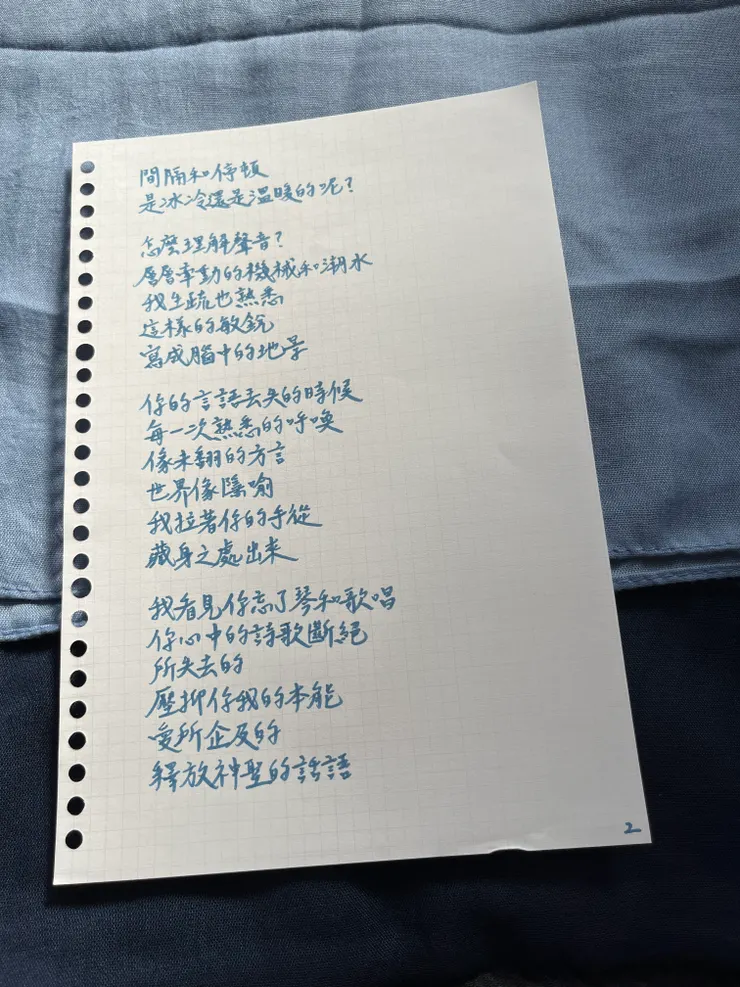 間隔和停頓
是冰冷還是溫暖的呢？
怎麼理解聲音？
層層牽動的機械和潮水
我生疏也熟悉
這樣的敏銳
寫成腦中的地景
你的言語丟失的時候
每一次熟悉的呼喚
像未翻的方言
世界像隱喻
我拉著你的手從
藏身之處出來
我看見你忘了琴和歌唱
你心中的詩歌斷絕
所失去的
壓抑你我的本能
愛所企及的
釋放神聖的話語
2